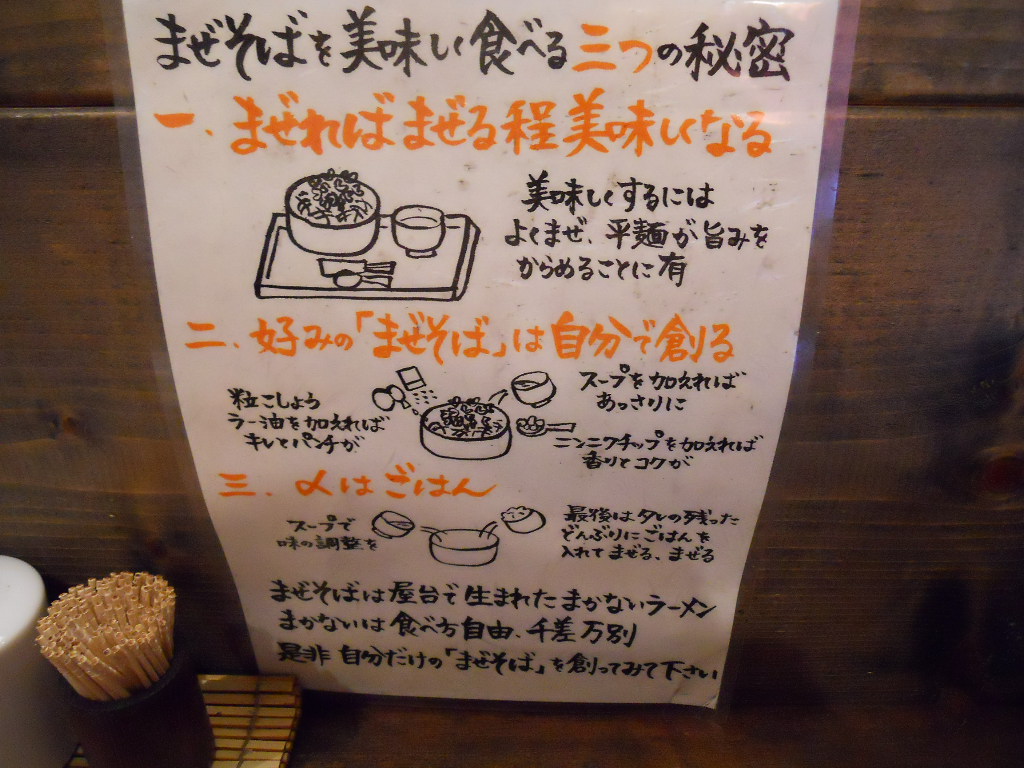 まぜそばを美味しく食べる三つの秘密
一、まぜればまぜる程美味しくなる
美味しくするには
よくまぜ、平麺が旨みを
からめることに有
二、好みの「まぜそば」は自分で創る
粒こしょう
ラー油を加えれば
キレとパンチが
スープを加えれば
あっさりに
ニンニクチップを加えれば
香りとコクが
三、〆はごはん
スープで
味の調整を
最後はタレの残った
どんぶりにごはんを
入れてまぜる、まぜる
まぜそばは屋台で生まれたまかないラーメン
まかないは食べ方自由、千差万別
是非自分だけの「まぜそば」を創ってみて下さい